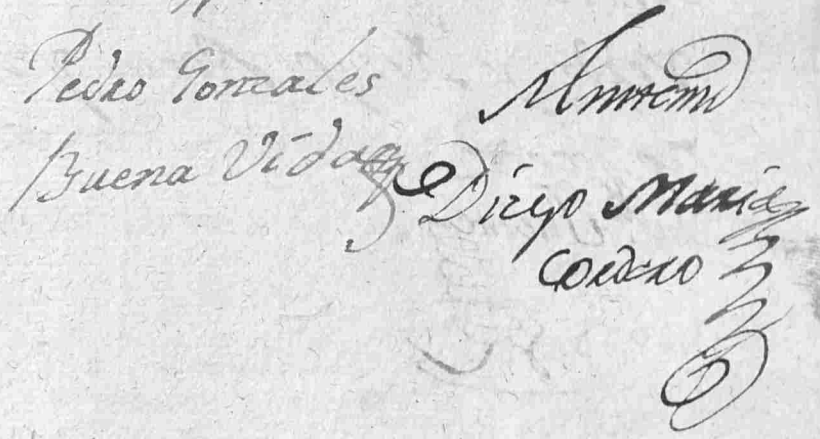 Pedro Gonzales
Buena Vida
Ante mi
Diego Maria
Cordero